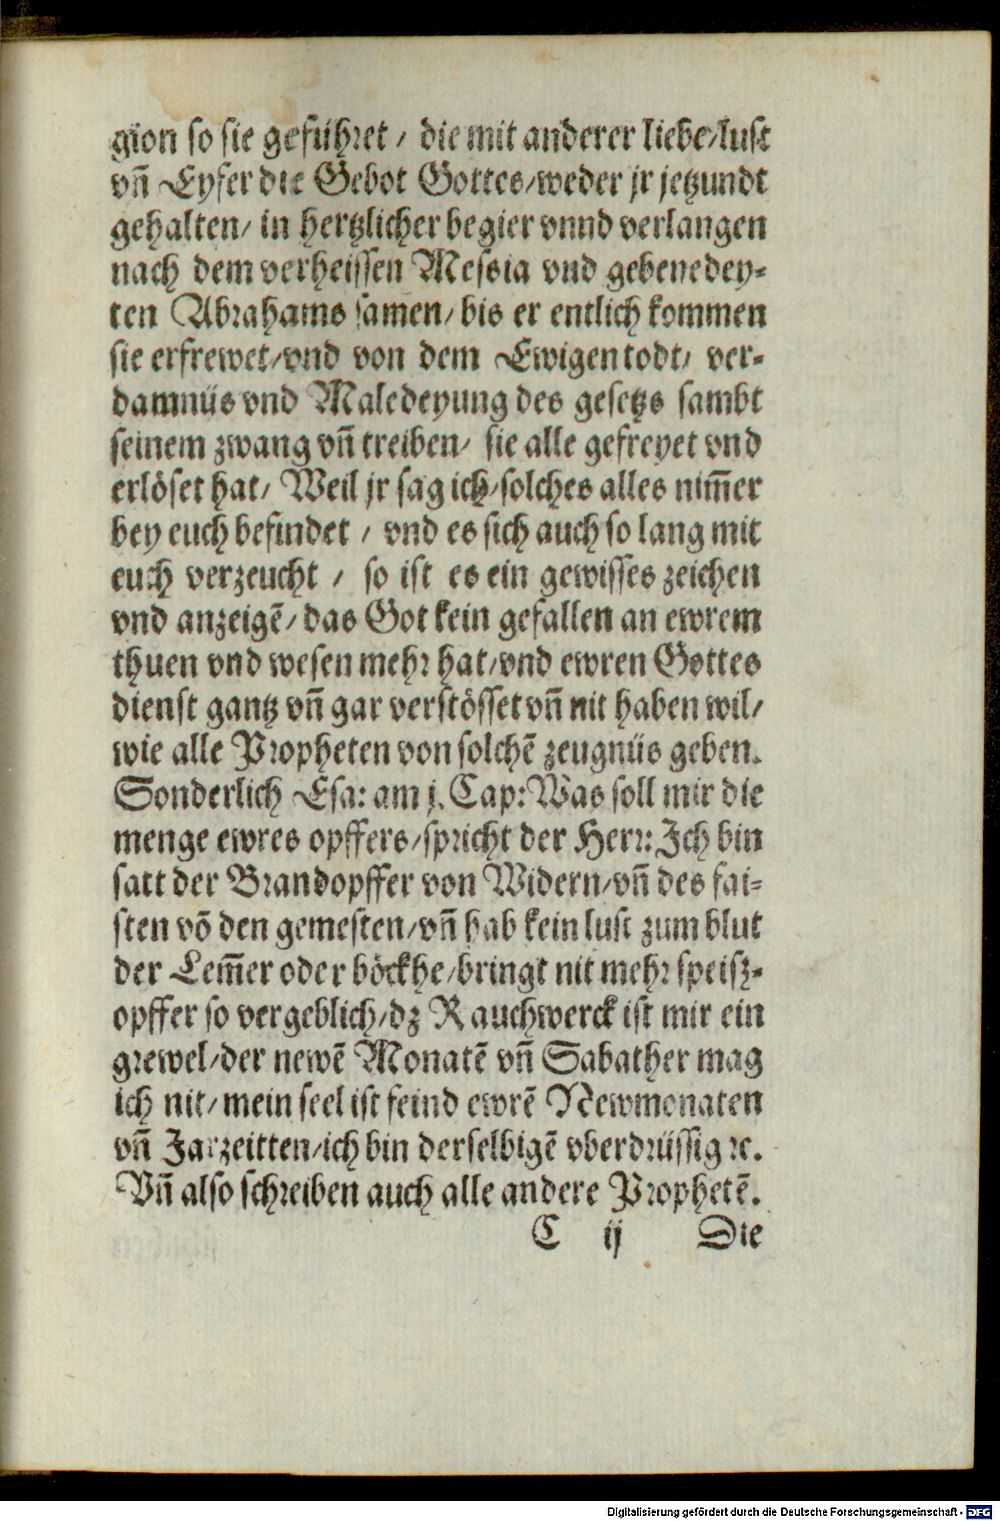 gion so sie geführet / die mit anderer liebe/lust
vñ Eyfer die Gebot Gottes/weder jr jetzundt
gehalten/ in hertzlicher begier vnnd verlangen
nach dem verheissen Messia vnd gebenedey-
ten Abrahams samen/ bis er entlich kommen
sie erfrewet/vnd von dem Ewigen todt/ ver-
damnüs vnd Maledeyung des gesetzs sambt
seinem zwang vñ treiben/ sie alle gefreyet vnd
erlöset hat/ Weil jr sag ich/solches alles nim̃er
bey euch befindet / vnd es sich auch so lang mit
euch verzeucht / so ist es ein gewisses zeichen
vnd anzeigẽ/ das Got kein gefallen an ewrem
thuen vnd wesen mehr hat/vnd ewren Gottes
dienst gantz vñ gar verstösset vñ nit haben wil/
wie alle Propheten von solchẽ zeugnüs geben.
Sonderlich Esa: am j. Cap: Was soll mir die
menge ewres opffers/spricht der Herr: Ich bin
satt der Brandopffer von Widern/vñ des fai-
sten võ den gemesten/vñ hab kein lust zum blut
der Lem̃er oder böckhe/bringt nit mehr speisz-
opffer so vergeblich/dz Rauchwerck ist mir ein
grewel/der newẽ Monatẽ vñ Sabather mag
ich nit/mein seel ist feind ewrẽ Newmonaten
vñ Jarzeitten/ich bin derselbigẽ vberdrüssig ꝛc.
Vñ also schreiben auch alle andere Prophetẽ.
C ij Die
Digitalisierung gefördert durch die Deutsche Forschungsgemeinschaft - DFG